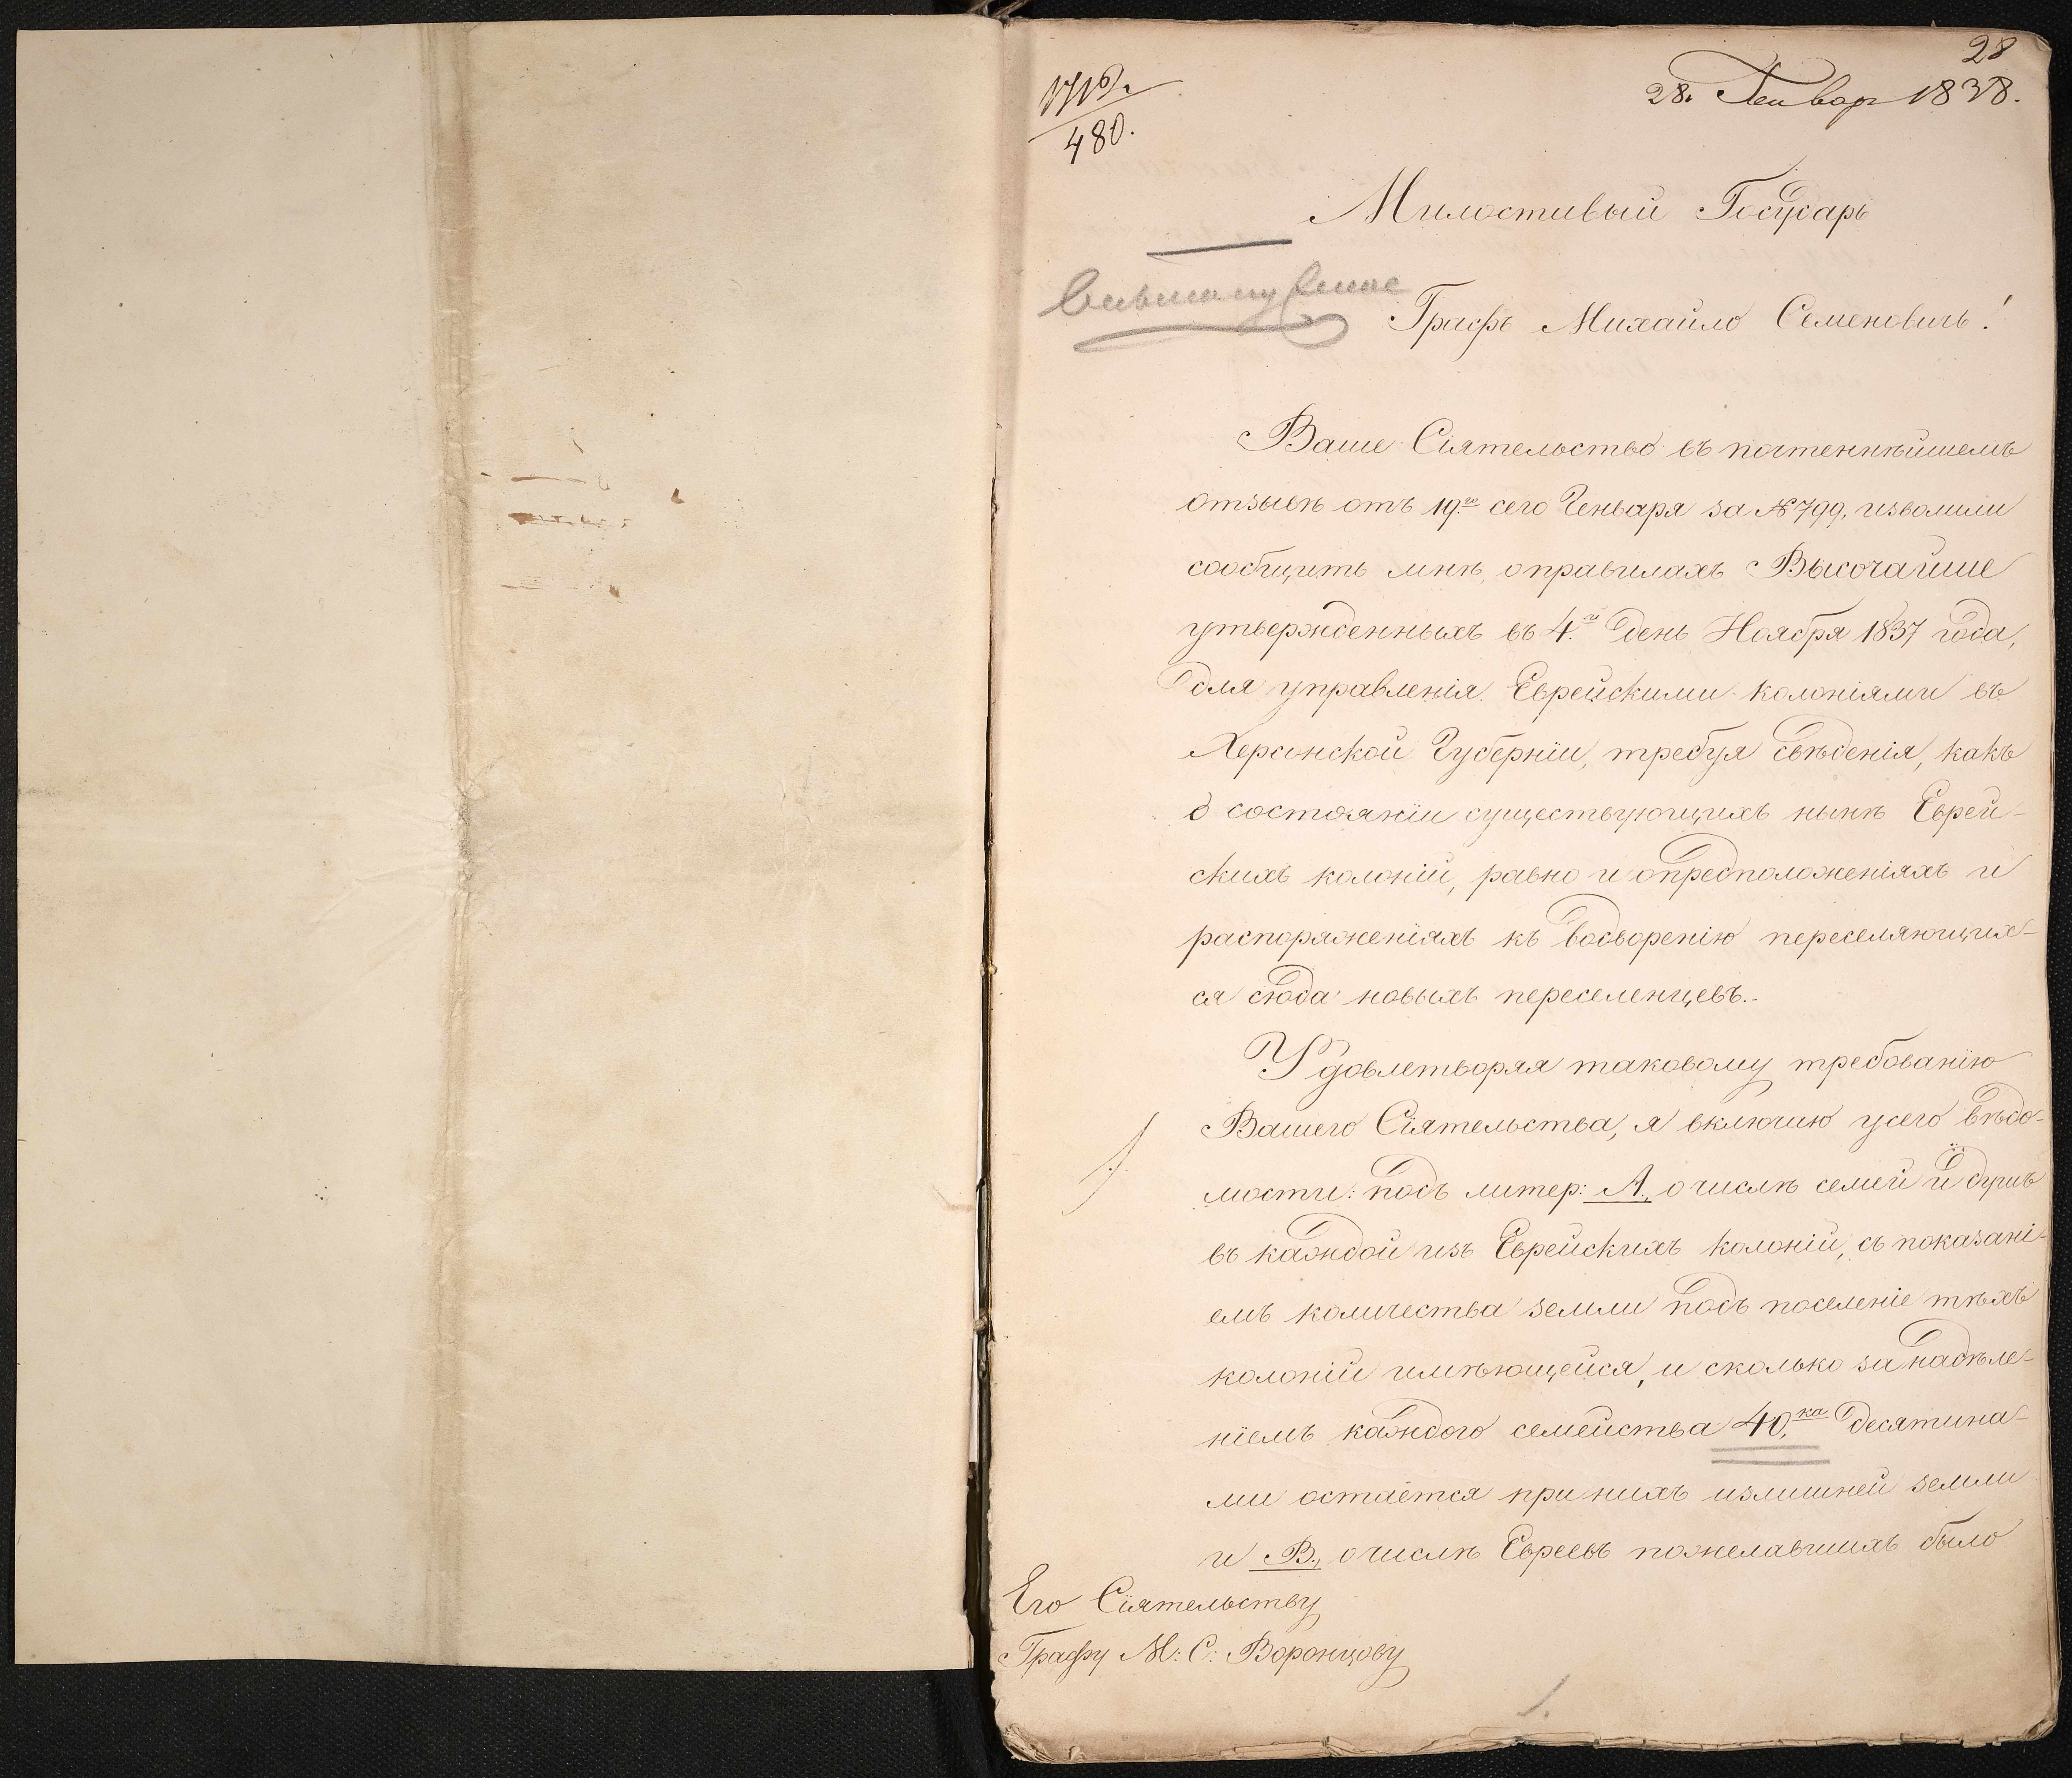 28
28. Генвар 1838.
480.
Милостивый Государь
Графъ Михайло Семеновичъ!
Ваше Сіятельство въ почтеннѣйшемъ
отзывѣ отъ 19.го сего Генваря за № 799, изволили
сообщить мнѣ, о правилахъ Высочайше
утвержденныхъ въ 4.й день Ноября 1837 года,
для управленія Еврейскими колоніями въ
Херсонской Губерніи, требуя свѣденія, какъ
о состояніи существующихъ нынѣ Еврей-
скихъ колоній, равно и о предположеніяхъ и
распоряженіяхъ къ водворенію переселяющих-
ся сюда новыхъ переселенцевъ.-
Удовлетворяя таковому требованію
Вашего Сіятельства, я включаю у сего вѣдо-
мости: подъ литер: А., о числѣ семей и душъ
въ каждой изъ Еврейскихъ колоній, съ показані-
емъ количества земли подъ поселеніе тѣхъ
колоній имѣющейся, и сколько за надѣле-
ніемъ каждого семейства 40.ка десятина-
ми остаётся при нихъ излишней земли
и В., о числѣ Евреевъ пожелавшихъ было
Его Сіятельству
Графу М: С: Воронцову
1.